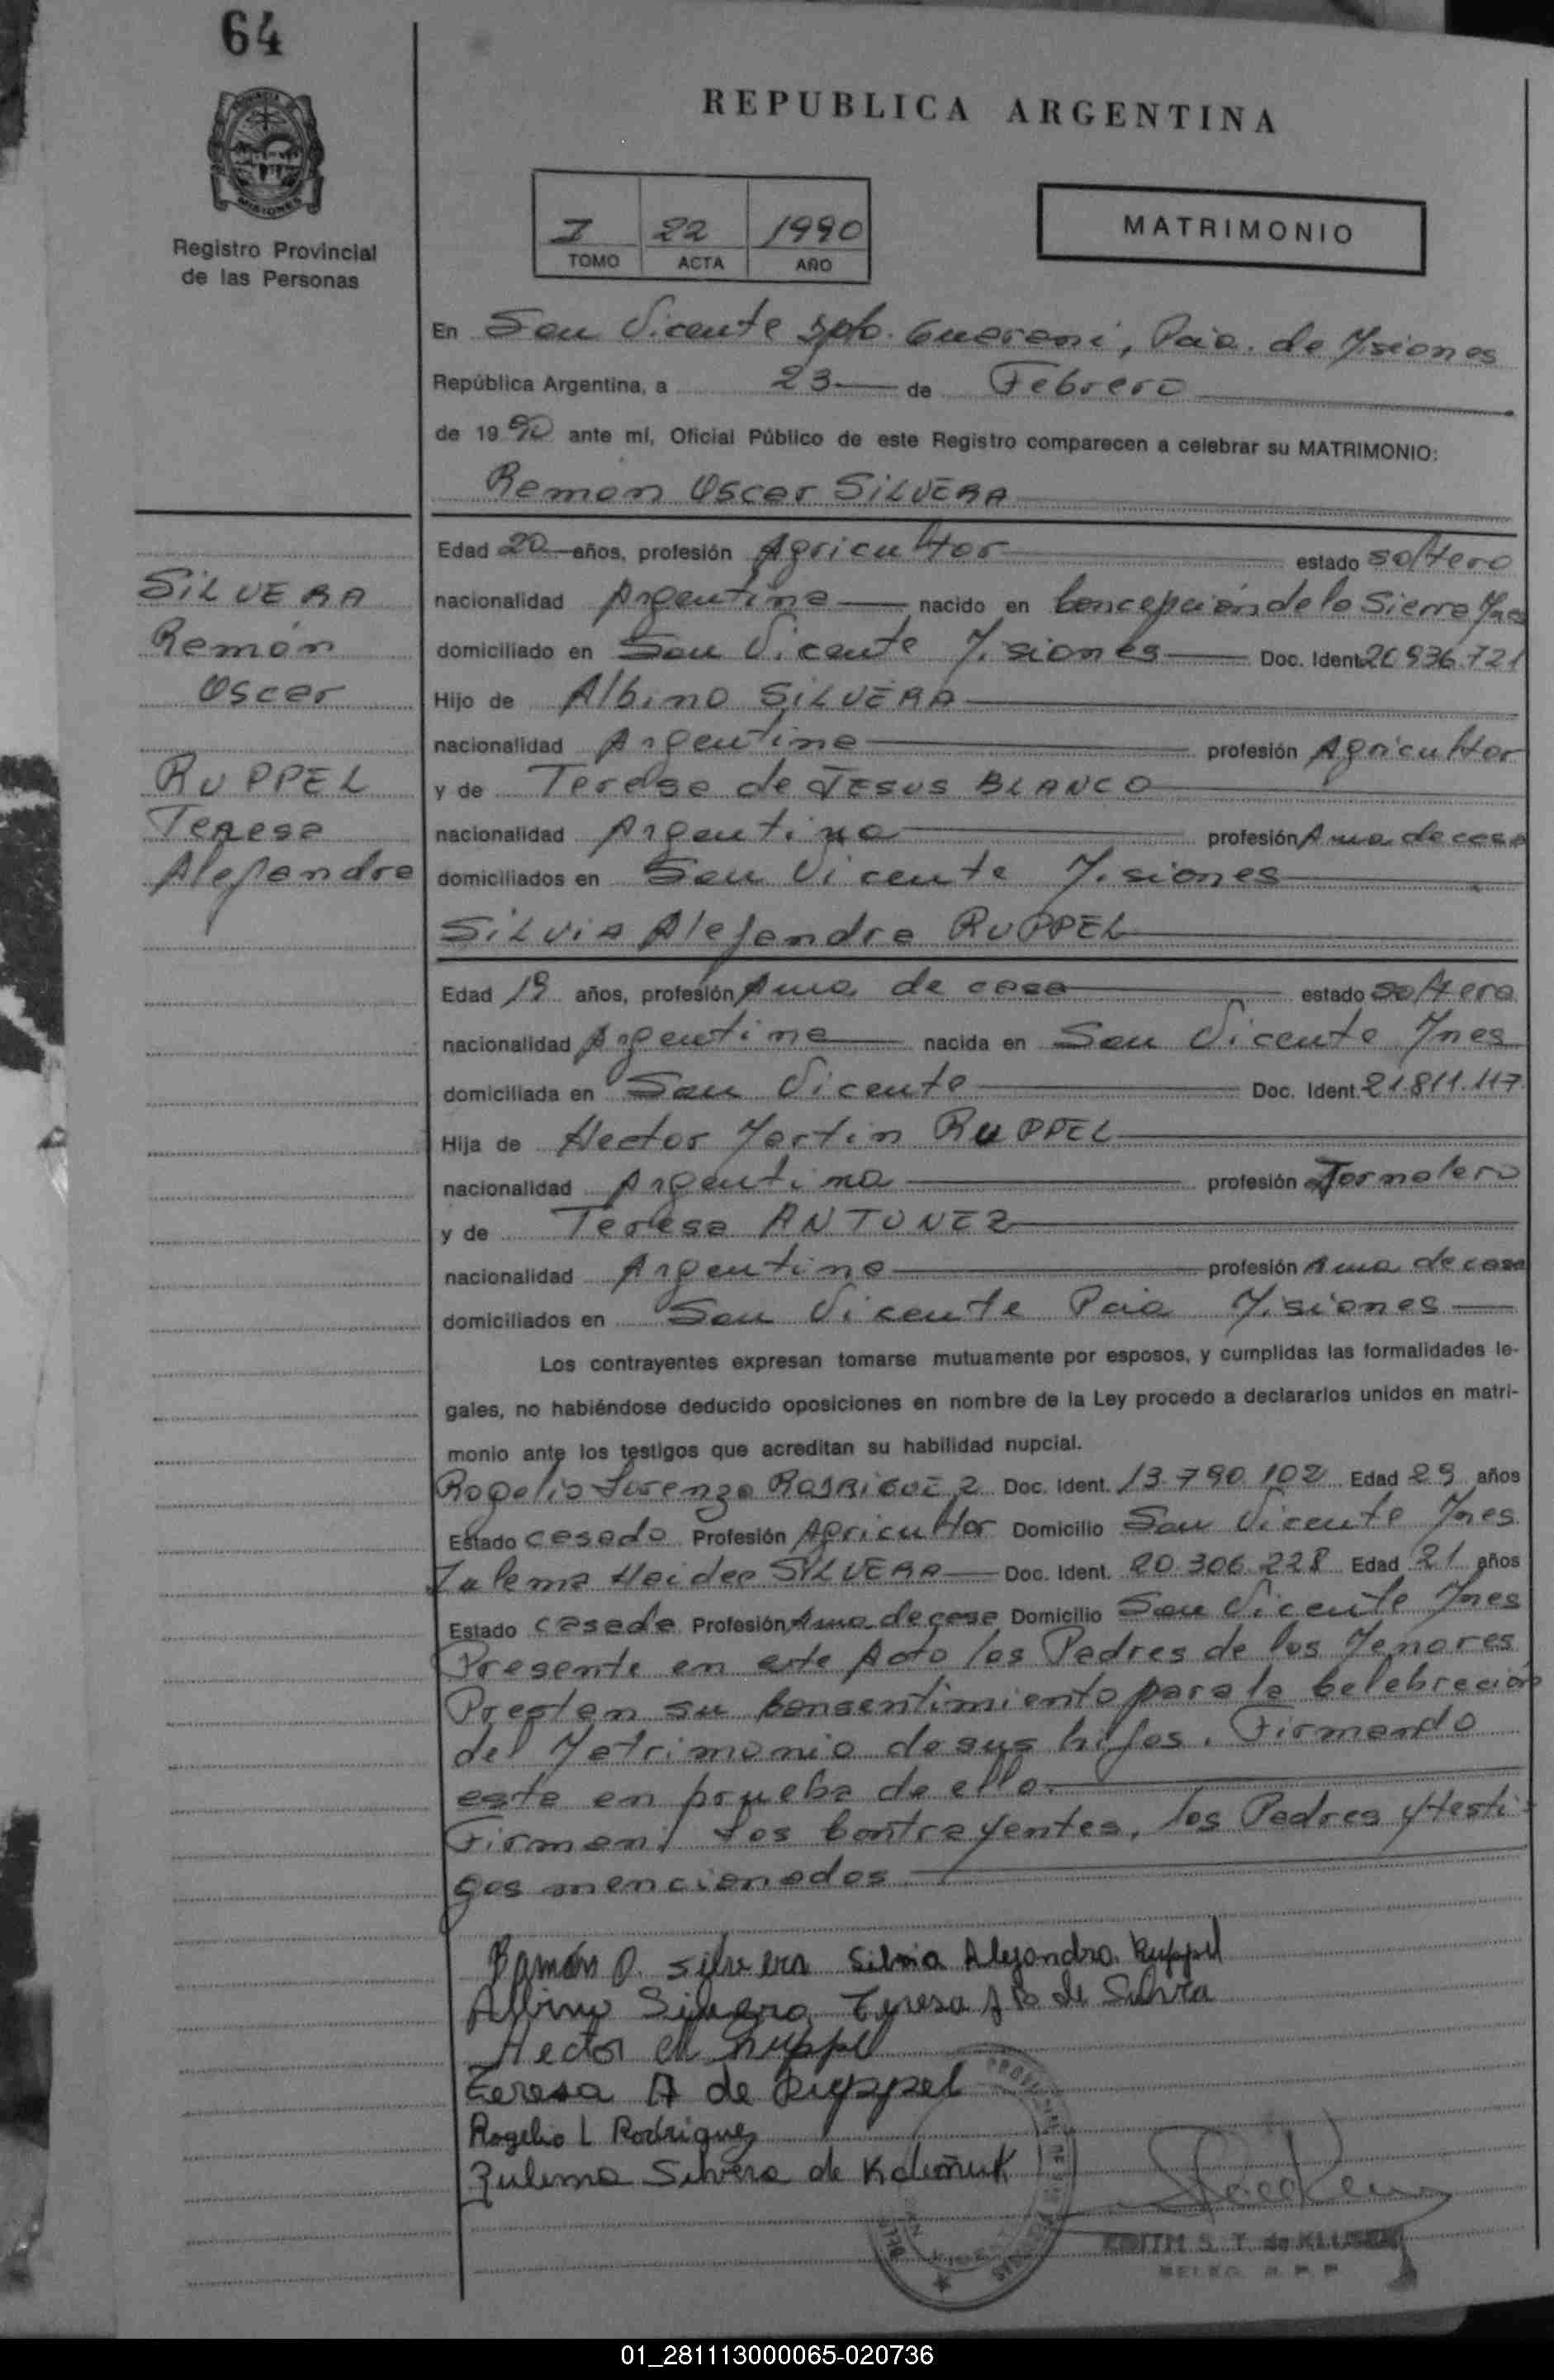 64
REPUBLICA ARGENTINA
MISIONES
Registro Provincial
de las Personas
I 22 1990
TOMO ACTA AÑO
MATRIMONIO
En San Vicente Dpto. Guarani, Pcia. de Misiones
República Argentina, a 23 de Febrero
de 1990 ante mí, Oficial Público de este Registro comparecen a celebrar su MATRIMONIO:
Ramon Oscar SILVERA
Edad 20 años, profesión Agricultor estado soltero
nacionalidad Argentina nacido en Concepción de la Sierra Mnes
domiciliado en San Vicente Misiones Doc. Ident. 20.936.721
Hijo de Albino SILVERA
nacionalidad Argentina profesión Agricultor
y de Teresa de JESUS BLANCO
nacionalidad Argentina profesión Ama de casa
domiciliados en San Vicente Misiones
SILVERA
Ramón
Oscar
RUPPEL
Teresa
Alejandra
SILVIA Alejandra RUPPEL
Edad 19 años, profesión Ama de casa estado soltera
nacionalidad Argentina nacida en San Vicente Mnes
domiciliada en San Vicente Doc. Ident. 21.811.117
Hija de Hector Martin RUPPEL
nacionalidad Argentina profesión Jornalero
y de Teresa ANTUNEZ
nacionalidad Argentina profesión Ama de casa
domiciliados en San Vicente Pcia Misiones
Los contrayentes expresan tomarse mutuamente por esposos, y cumplidas las formalidades le-
gales, no habiéndose deducido oposiciones en nombre de la Ley procedo a declararlos unidos en matri-
monio ante los testigos que acreditan su habilidad nupcial.
Rogelio Lorenzo RODRIGUEZ Doc. Ident. 13.790.102 Edad 29 años
Estado casado Profesión Agricultor Domicilio San Vicente Mnes
Zulema Haidee SILVERA Doc. Ident. 20.306.228 Edad 21 años
Estado casada Profesión Ama de casa Domicilio San Vicente Mnes
Presente en este Acto los Padres de los Menores
Prestan su Consentimiento para la Celebración
del Matrimonio de sus hijos. Firmando
este en prueba de ello.
Firman los Contrayentes, los Padres y testi-
gos mencionados
Ramón O. Silvera Silvia Alejandra Ruppel
Albino Silvera Teresa J B de Silvera
Hector M Ruppel
Teresa A de Ruppel
Rogelio L Rodriguez
Zulema Silvera de
EDITH S. T. de KLUSEN
01_281113000065-020736